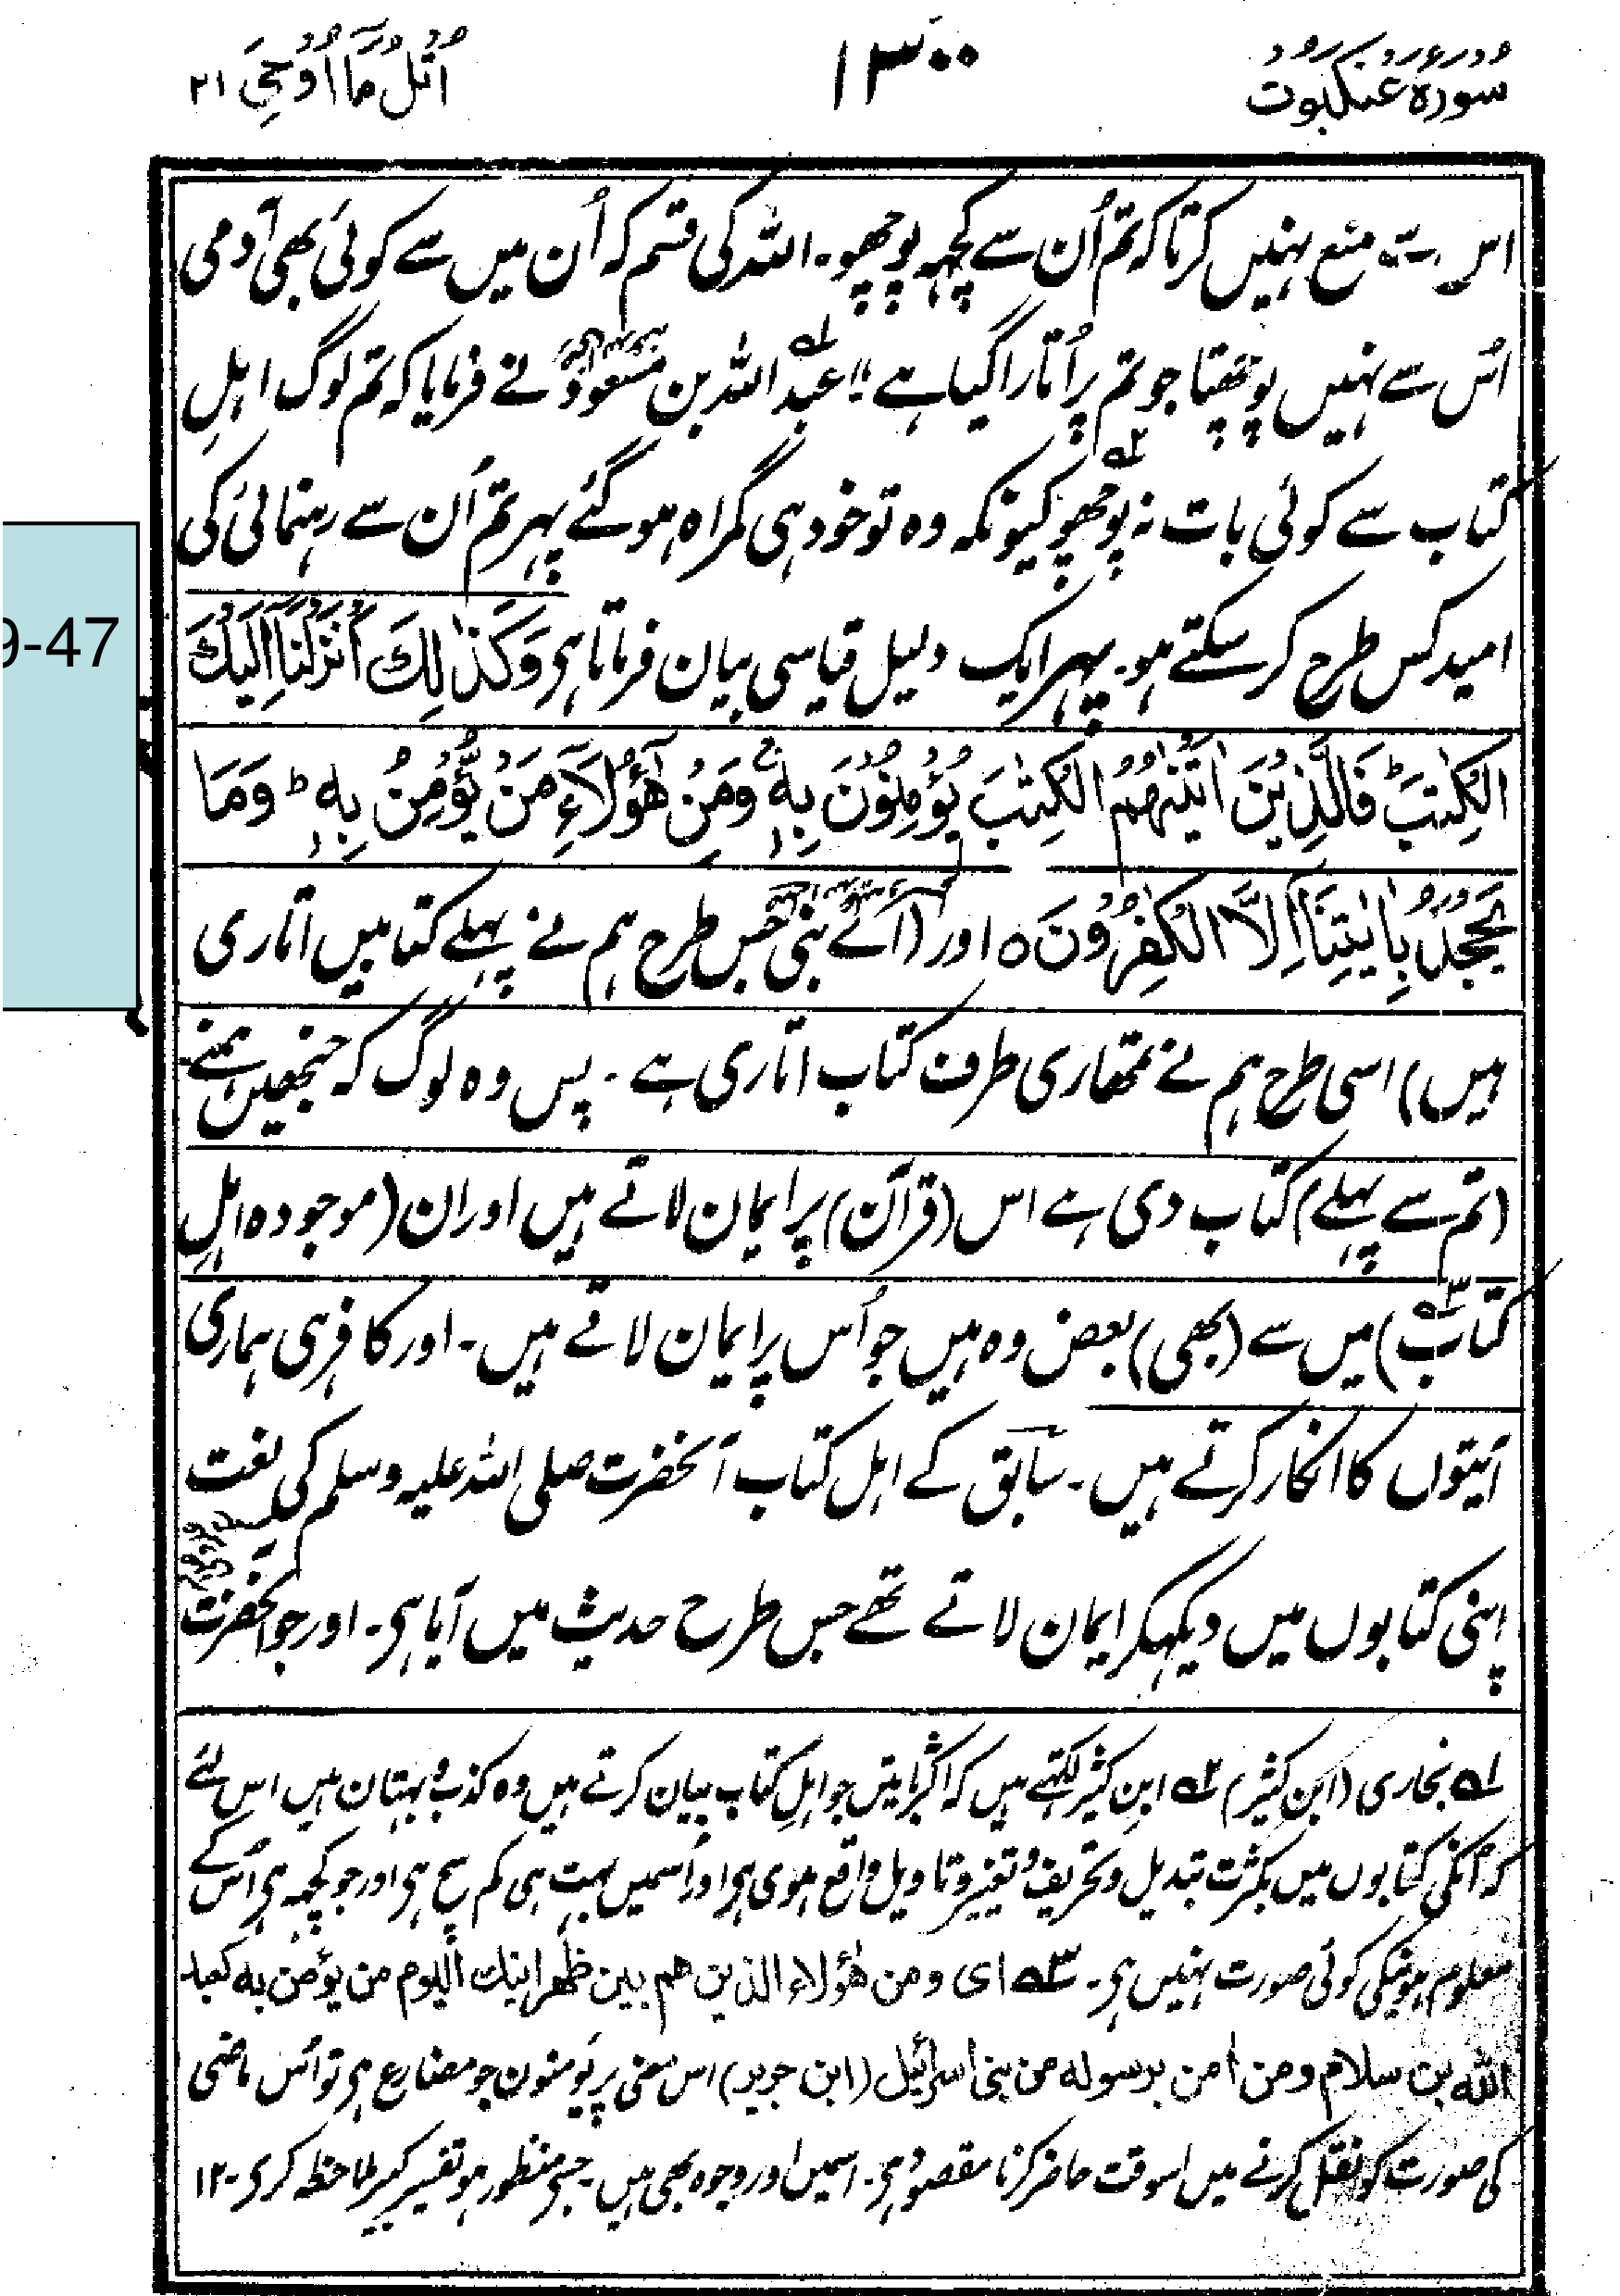 سورة عنکبوت
۱۳۰۰
اُتْلُ مَآ اُوْحِیَ ۲۱
اس سے منع نہیں کرتا کہ تم اُن سے کچہہ پوچھو۔ اللہ کی قسم کہ اُن میں سے کوئی بھی آدمی
اُس سے نہیں پوچھتا جو تم پر اُتارا گیا ہے"۔ عبد اللہ بن مسعودؓ نے فرمایا کہ تم لوگ اہلِ
کتاب سے کوئی بات نہ پوچھو کیونکہ وہ تو خود ہی گمراہ ہو گئے پہر تم اُن سے رہنمائی کی
امید کس طرح کر سکتے ہو۔ پہر ایک دلیل قیاسی بیان فرماتا ہی وَكَذٰلِكَ اَنْزَلْنَآ اِلَيْكَ
الْكِتٰبَ ؕ فَالَّذِيْنَ اٰتَيْنٰهُمُ الْكِتٰبَ يُؤْمِنُوْنَ بِهٖ ۚ وَمِنْ هٰٓؤُلَآءِ مَنْ يُّؤْمِنُ بِهٖ ؕ وَمَا
يَجْحَدُ بِاٰيٰتِنَآ اِلَّا الْكٰفِرُوْنَ ہ اور (اے نبی جس طرح ہم نے پہلے کتابیں اتاری
ہیں) اسی طرح ہم نے تمھاری طرف کتاب اتاری ہے ۔ پس وہ لوگ کہ جنھیں ہمنے
(تم سے پہلے) کتاب دی ہے اس (قرآن) پر ایمان لاتے ہیں اور ان (موجودہ اہلِ
کتاب۳) میں سے (بھی) بعض وہ ہیں جو اُس پر ایمان لاتے ہیں۔ اور کافر ہی ہماری
آیتوں کا انکار کرتے ہیں۔ سابق کے اہل کتاب آنحضرت صلی اللہ علیہ وسلم کی نعت
اپنی کتابوں میں دیکہکر ایمان لاتے تھے جس طرح حدیث میں آیا ہی۔ اور جو آنحضرت
۱ بخاری (ابن کثیر) ۲ ابن کثیر لکتے ہیں کہ اکثر باتیں جو اہلِ کتاب بیان کرتے ہیں وہ کذب و بہتان ہیں اس لئے
کہ انکی کتابوں میں بکثرت تبدیل و تحریف و تغییر و تاویل واقع ہوی ہی اور اُسمیں بہت ہی کم سچ ہی اور جو کچہہ ہی اُس کے
معلوم ہونیکی کوئی صورت نہیں ہی۔ ۳ ای ومن هٰؤلاء الذین هم بین ظهرانیك الیوم من یؤمن به كعبد
الله بن سلام ومن اٰمن برسوله من بنی اسرائیل (ابن جریر) اس معنی پر یؤمنون جو مضارع ہی تو اُس ماضی
کی صورت کو نقل کرنے میں اسوقت حاضر کرنا مقصود ہی۔ اسمیں اور وجوہ بھی ہیں۔ جسے منظور ہو تفسیر کبیر ملاحظہ کری۔ ۱۲
9-47